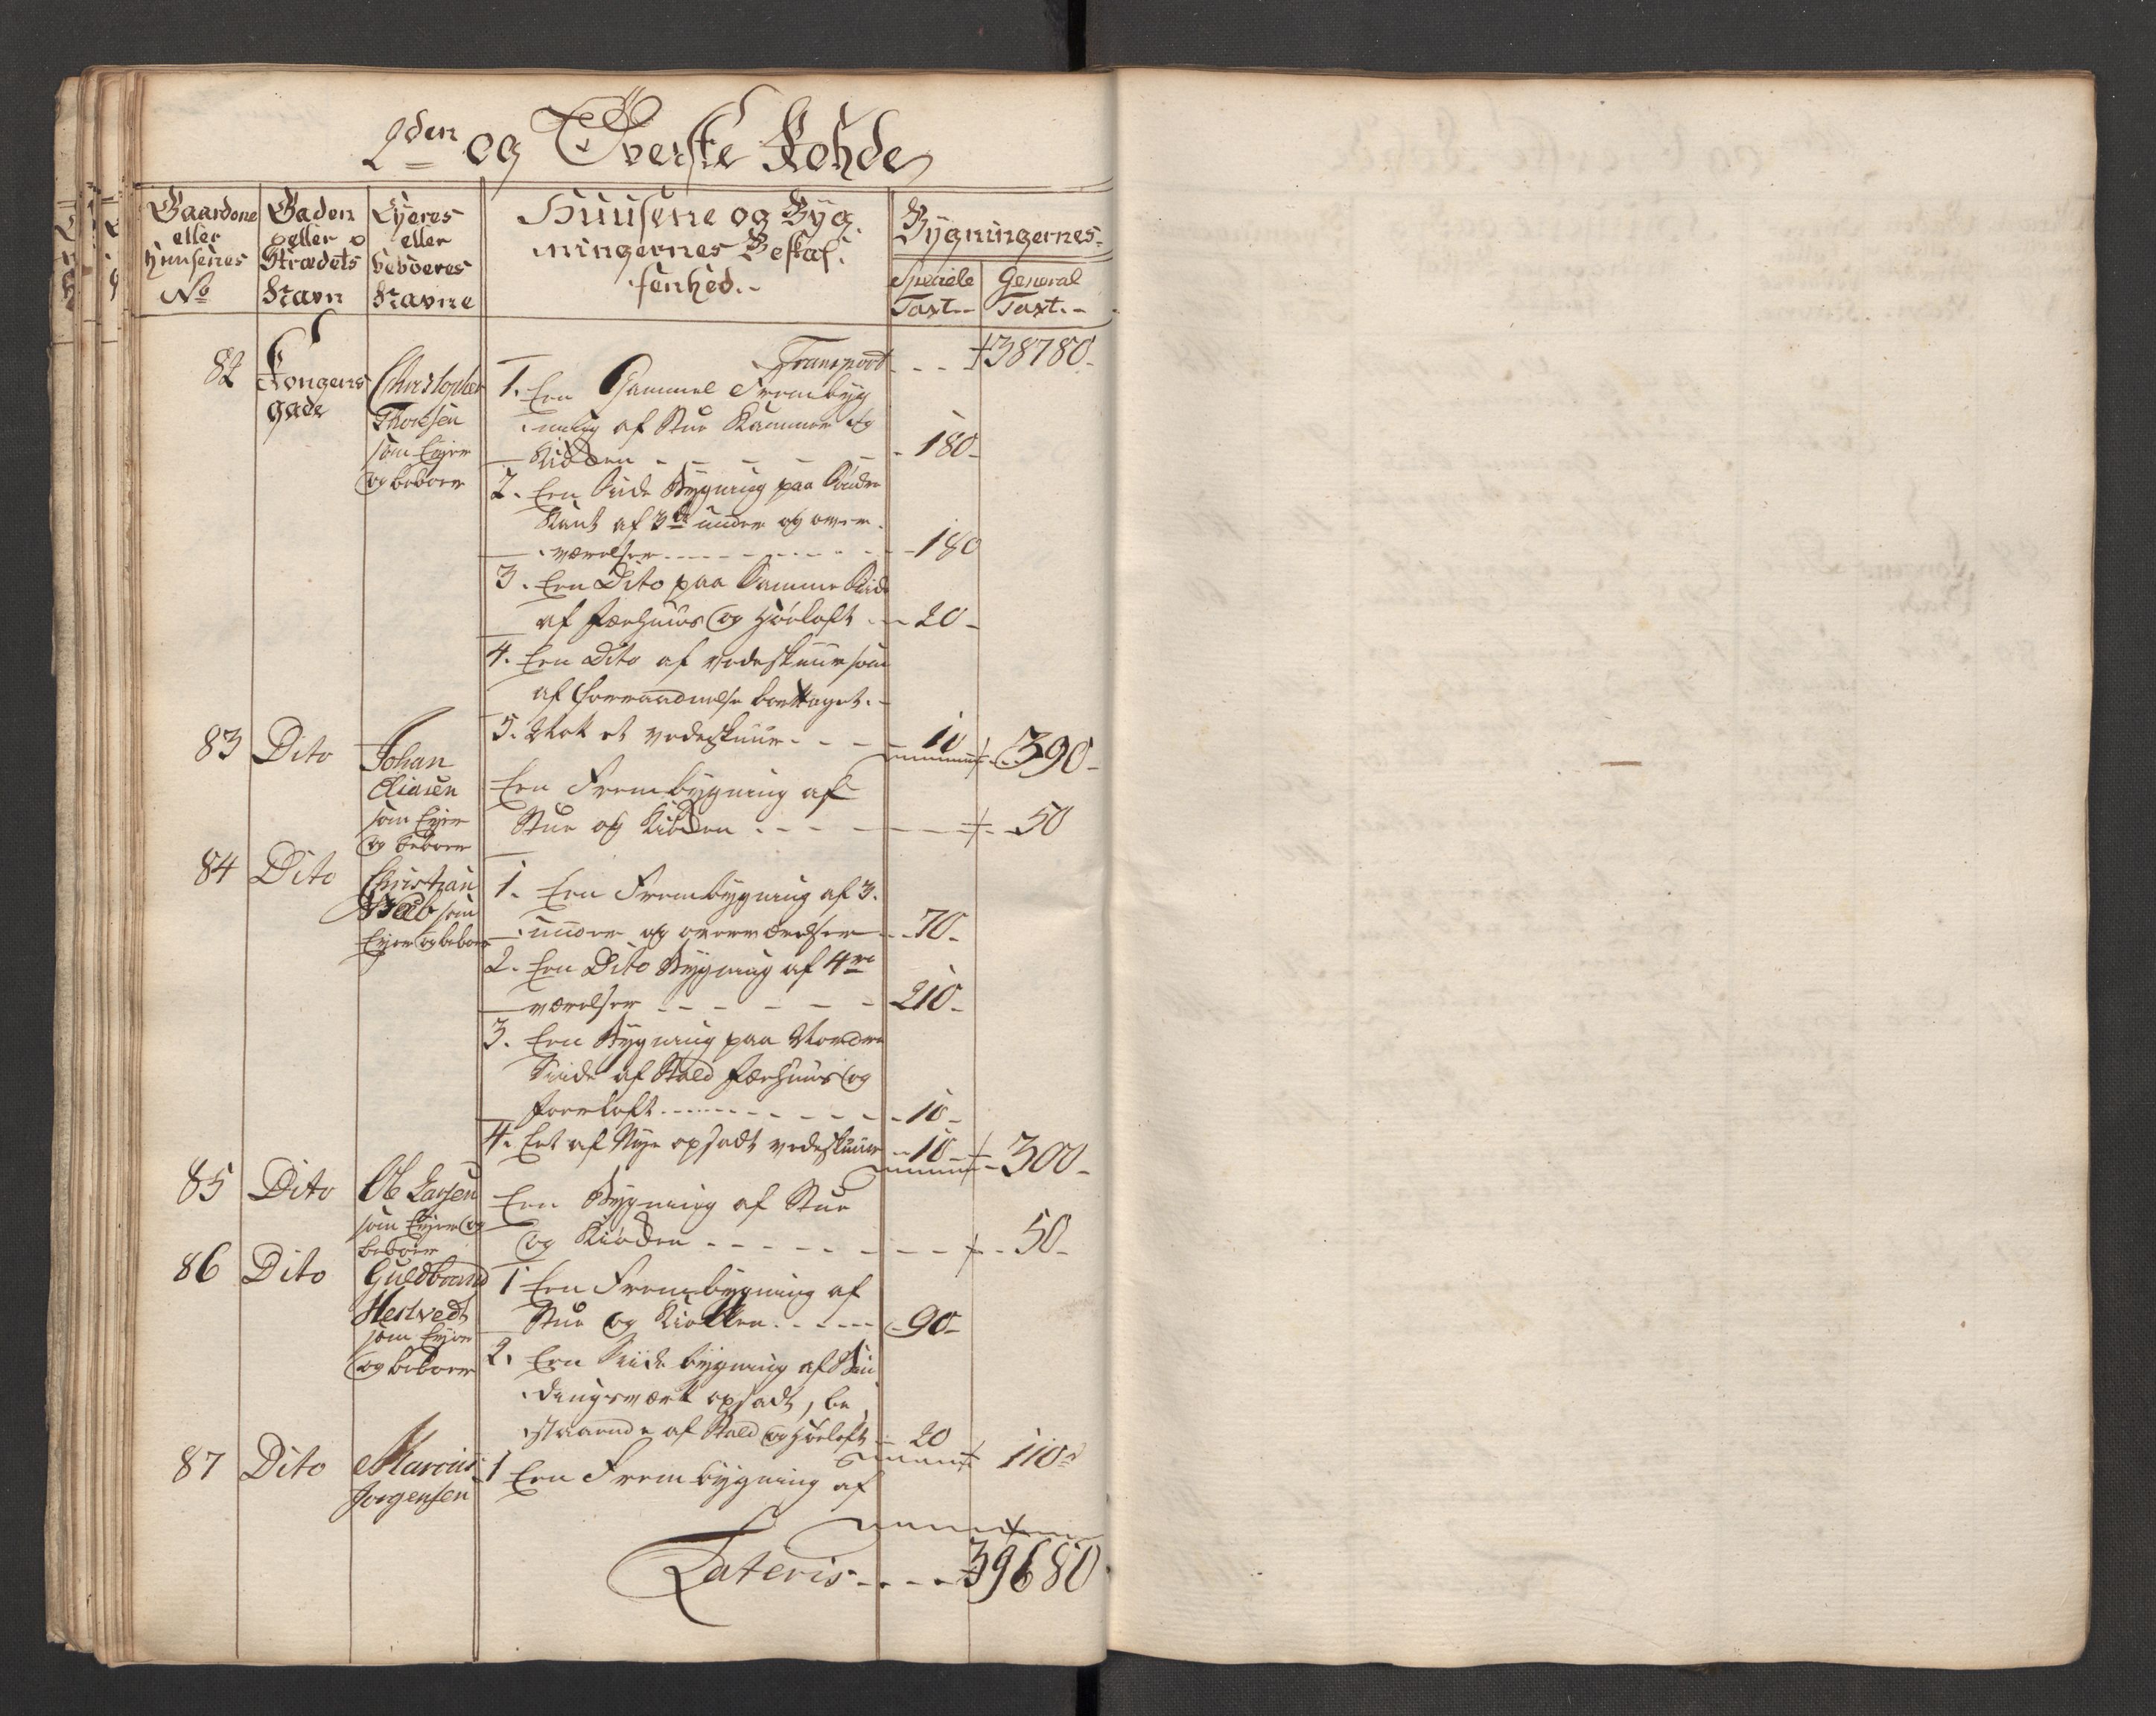 2den og Överste Rohde
Gaardene eller Huusenes No
Gaden eller Strædets Navn
Ejeres eller beboeres Navne
Huusene og Byg-
ningernes Beskaf-
fenhed.
Bygningernes
Speciele Taxt
General Taxt
Transport - - - 38780-
82 Kongens gade
Christopher Thorsen som Eyer og beboer
1. Een Gammel Frembyg
ning af Stue Kammer og
Kiøcken - - - - - 180-
2. Een Siide Bygning paa Søndre
Kant af 3de under og over
værelser - - - - - 180
3. Een Dito paa Samme Siide
af Fæehuus og Høeloft - - 20-
4. Een Dito af vedeskuur som
af forraadnelse borttaget.
5. Nok et vedeskuur - - - 10 390-
83 Dito
Johan Eliasen som Eyer og beboer
Een Frembygning af
Stue og Kiøcken - - - 50
84 Dito
Christian som Eyer og beboer
1. Een Frembygning af 3
under og overværelser - - 70-
2. Een Dito Bygning af 4re
værelser - - - - - 210-
3. Een Bygning paa Nordre
Siide af Stald Fæehuus og
Foerloft - - - - - 10-
4. Eet af Nye opsadt vedeskuur - 10- 300-
85 Dito
Ole Larsen som Eyer og beboer
Een Bygning af Stue
og Kiøcken - - - - - 50-
86 Dito
Guldbrand Hestvedt som Eyer og beboer
1 Een Frembygning af
Stue og Kiøkken - - - - 90-
2. Een Siide bygning af Bin
dingsværk opsadt, be
staaende af Stald og Høeloft - 20 110-
87 Dito
Marcus Jorgensen
1 Een Frembygning af
Lateris - - - 39680